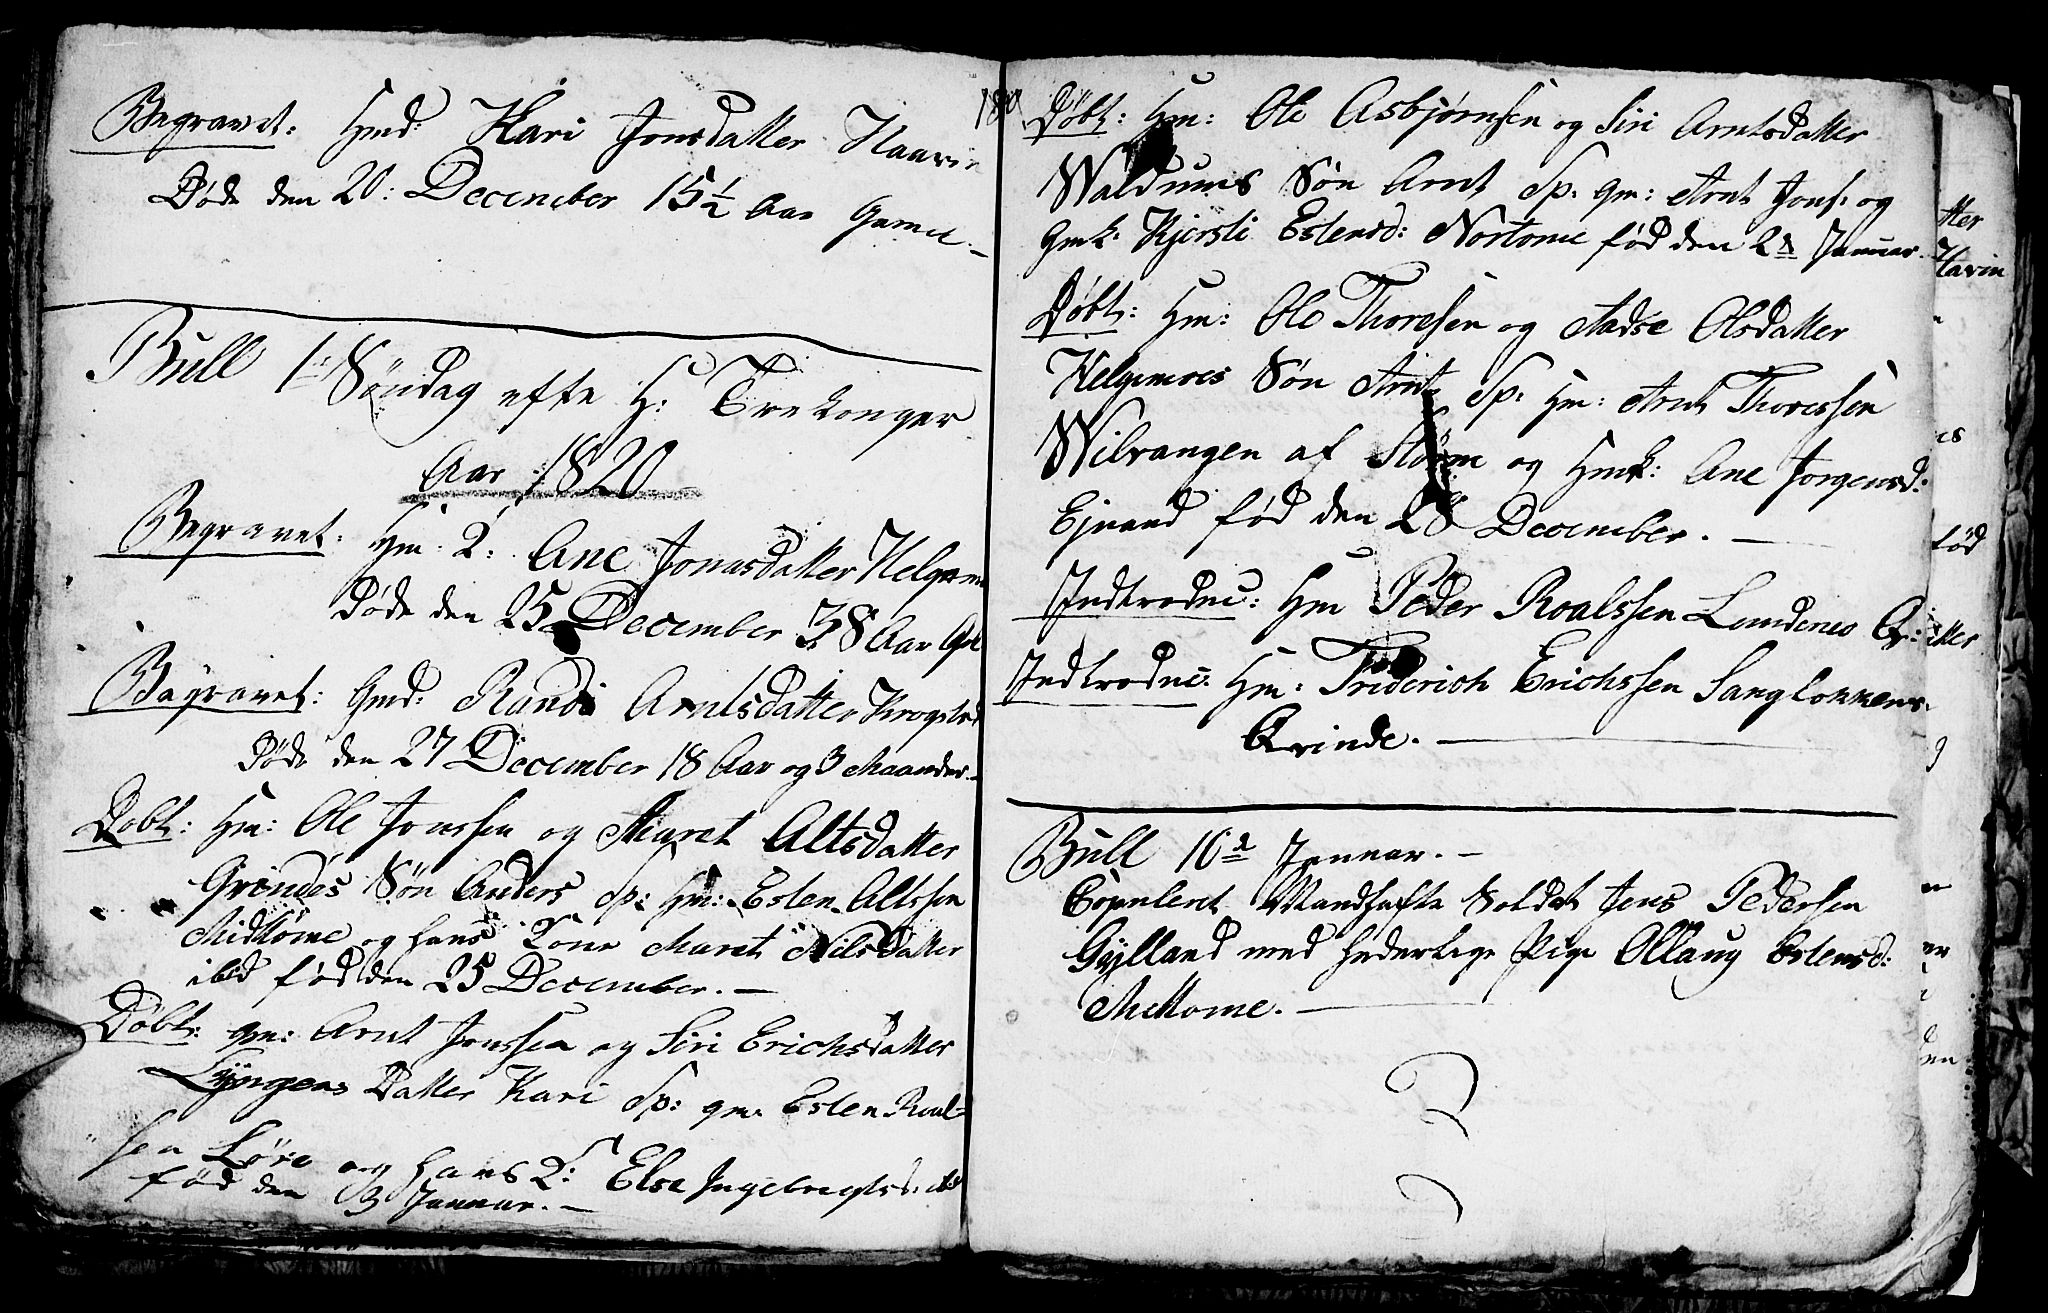 Begravet: Hmd: Kari Jonsdatter Haavin
Døde den 20: December 15½ Aar Gamel.
Bull 1te Søndag efte H: Trekonger
Aar 1820
Begravet: Hm: 2: Ane Jonasdatter Helgem
Døde den 25 December 38 Aar Gl
Begravet: Gmd: Randi Arntsdatter Krogsted
Døde den 27 December 18 Aar og 3 Maaneder.
Døbt: Hm: Ole Jonssen og Maret Altsdatter
Grindes Søn Anders Sp: Hm: Esten Altssen
Midtløme og hans Kone Maret NilsDatter
ibd fød den 25 December.
Døbt: gm: Arnt Jonssen og Siri Erichsdatter
Lyngens Datter Kari Sp: gm: Esten Roal-
sen Løre og hans K: Else Ingebregtsd: ibd
fød den 3 Januar.
180
Døbt: Hm: Ole Asbjørnsen og Siri Arntsdatter
Waldums Søn Arnt Sp: gm: Arnt Jons: og
Gmk: Kjersti Estensd: Nortome fød den 2den Januar.
Døbt: Hm: Ole Thoresen og Aadse Olsdatter
Helgemoes Søn Arnt Sp: Hm: Arnt Thoressen
Wilvangen af Støren og Hmk: Ane Jorgensd:
Ejnand fød den 28 December.
Indtroduc: Hm Peder Roalssen Lundenes Qv:
Indtroduc: Hm: Friderich Erichssen Sangløkkens
Qvinde.
Bull 16de Januar.
Copuleret Mandhafte Soldat Jens Pedersen
Gylland med Hederlige Pige Ollaug Estensd:
Mittome.
tter
Havin
fød
tter
er
en